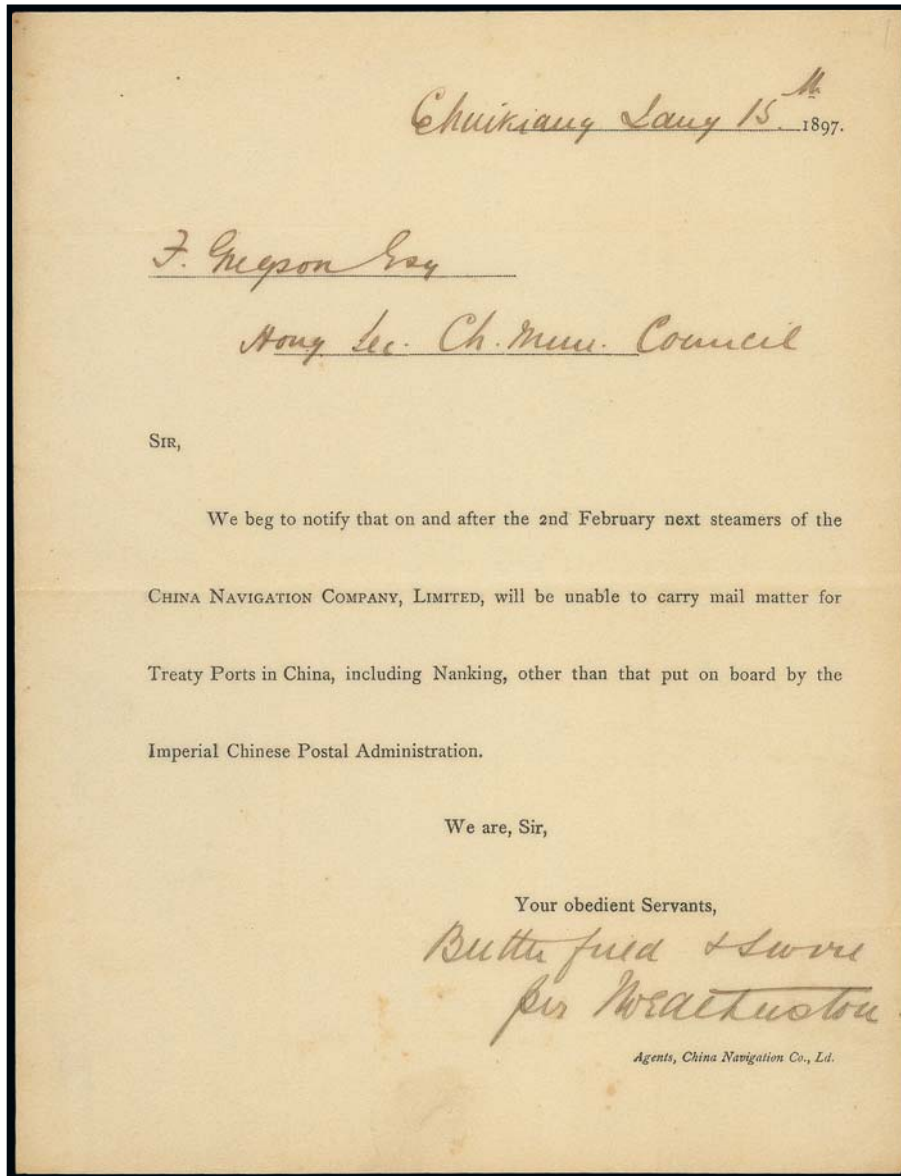 Chinkiang Jany 15th 1897.
F. Gregson Esq
Hony Sec. Ch. Mun. Council
SIR,
We beg to notify that on and after the 2nd February next steamers of the
CHINA NAVIGATION COMPANY, LIMITED, will be unable to carry mail matter for
Treaty Ports in China, including Nanking, other than that put on board by the
Imperial Chinese Postal Administration.
We are, Sir,
Your obedient Servants,
Butterfield & Swire
per
Agents, China Navigation Co., Ld.